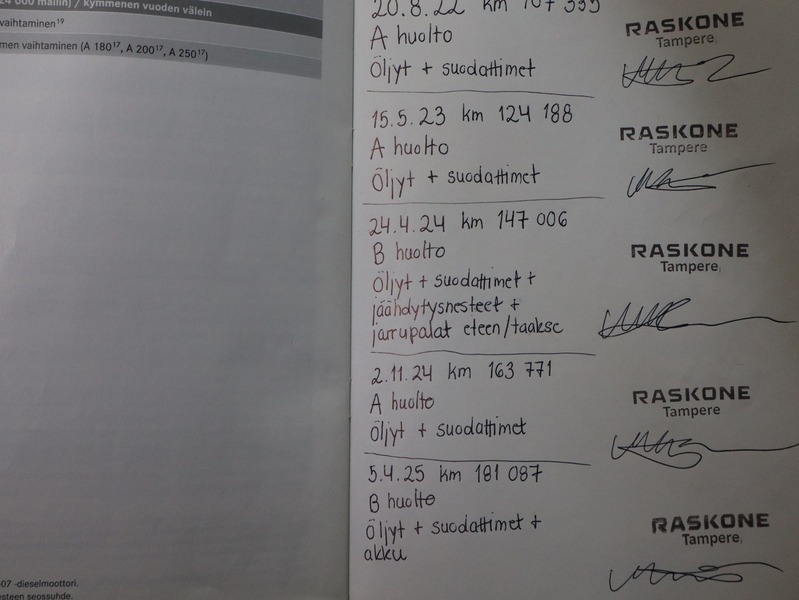 24 000 mailin) / kymmenen vuoden välein
vaihtaminen¹⁹
men vaihtaminen (A 180¹⁷, A 200¹⁷, A 250¹⁷)
07 -dieselmoottori.
steen seossuhde.
20.8.22 km 107 535
A huolto
Öljyt + suodattimet
RASKONE
Tampere
15.5.23 km 124 188
A huolto
Öljyt + suodattimet
RASKONE
Tampere
24.4.24 km 147 006
B huolto
Öljyt + suodattimet +
jäähdytysnesteet +
jarrupalat eteen/taakse
RASKONE
Tampere
2.11.24 km 163 771
A huolto
Öljyt + suodattimet
RASKONE
Tampere
5.4.25 km 181 087
B huolto
Öljyt + suodattimet +
akku
RASKONE
Tampere